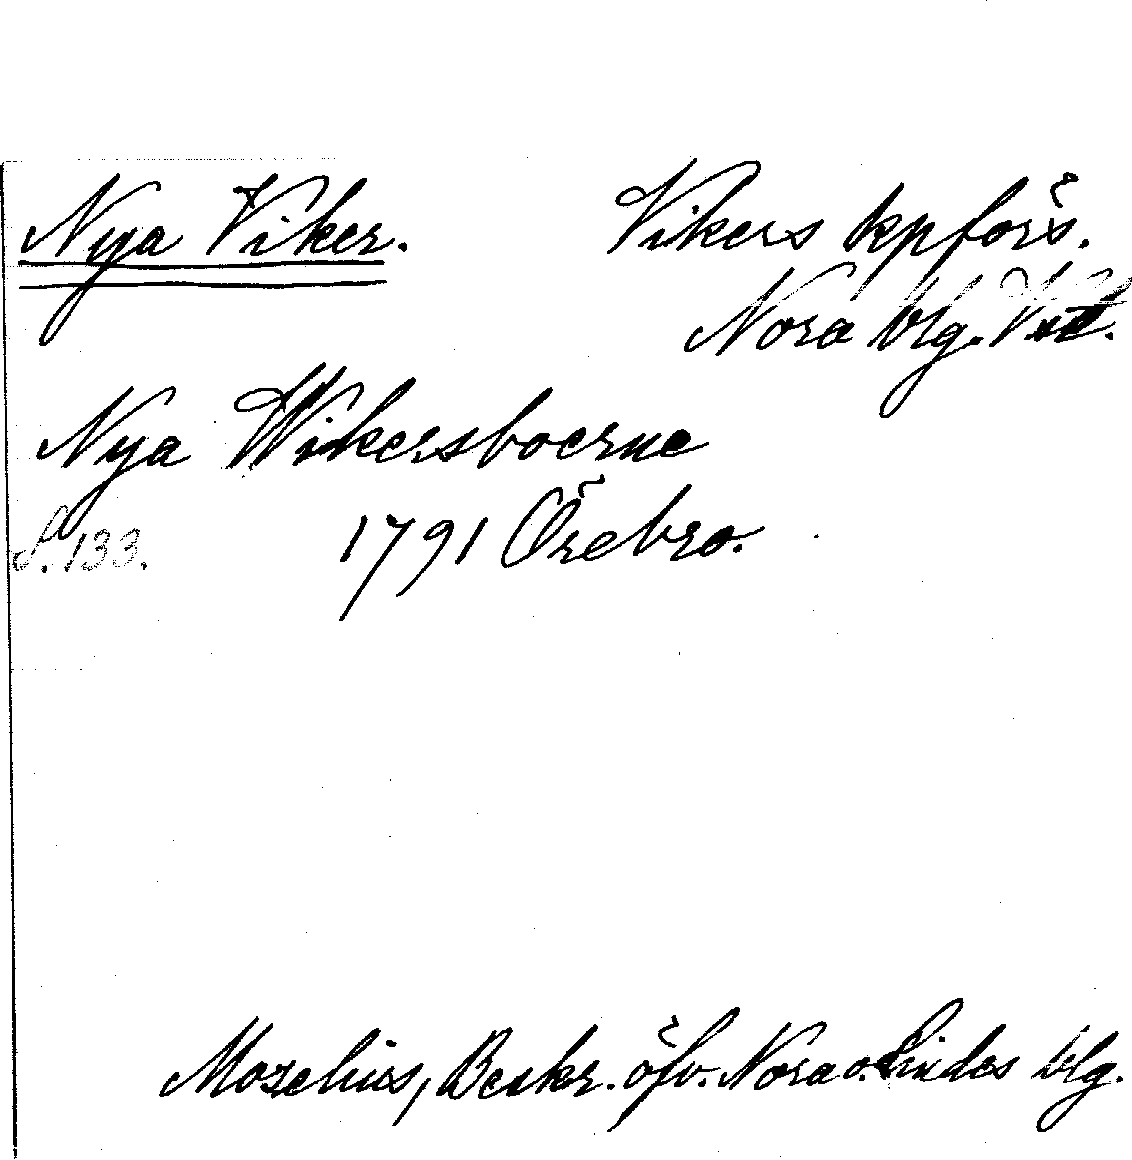 Nya Viker. Vikers kpförs.
Nora blg.
Nya Wikersboerne
S. 133. 1791 Örebro.
Mozelius, Beskr. öfv. Nora o. Lindes blg.